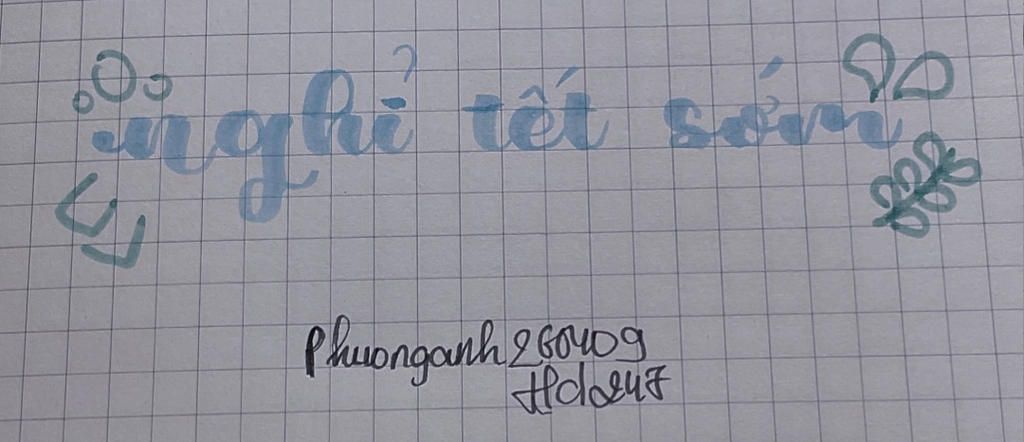 nghỉ tết sớm
Phuonganh260409
Hdo247